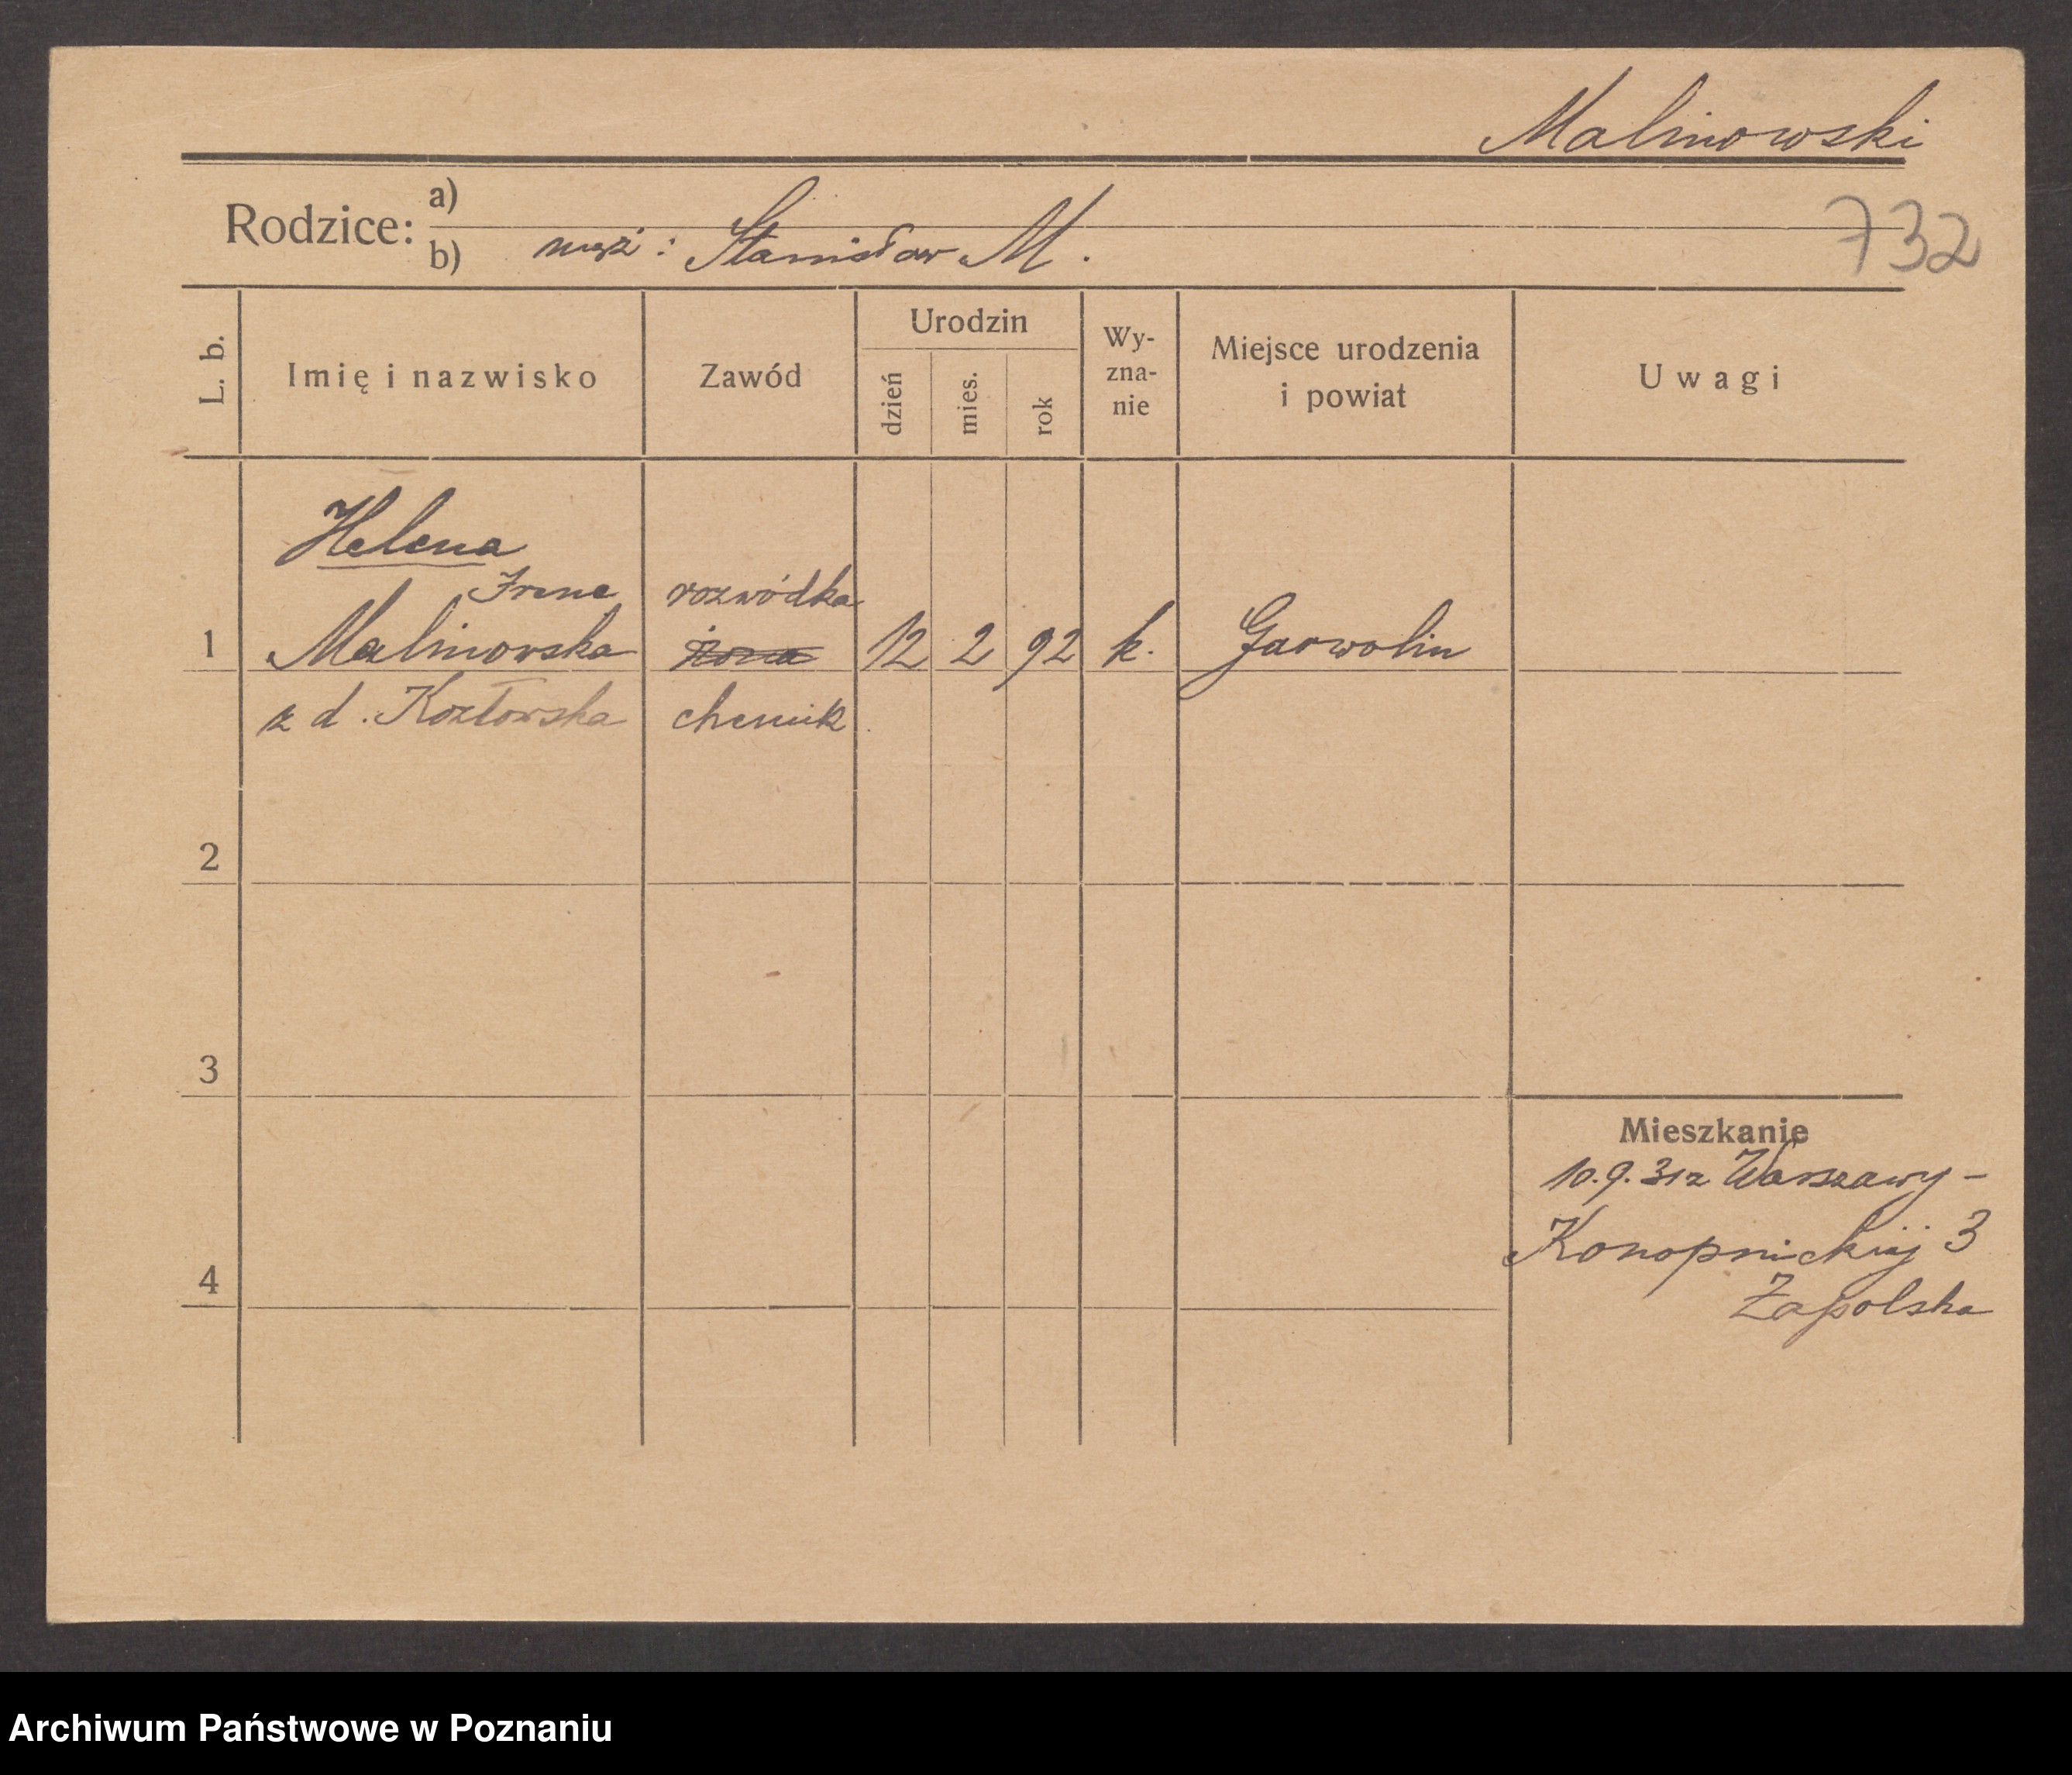 Malinowski
Rodzice: a)
b) mąż: Stanisław M.
732
L. b.
Imię i nazwisko
Zawód
Urodzin
dzień
mies.
rok
Wy-
zna-
nie
Miejsce urodzenia
i powiat
Uwagi
Helena
Irena rozwódka
1 Malinowska żona 12 2 92 k. Garwolin
z d. Kozłowska chemik
2
3
Mieszkanie
10.9.31 z Warszawy -
Konopnickiej 3
4
Zapolska
Archiwum Państwowe w Poznaniu